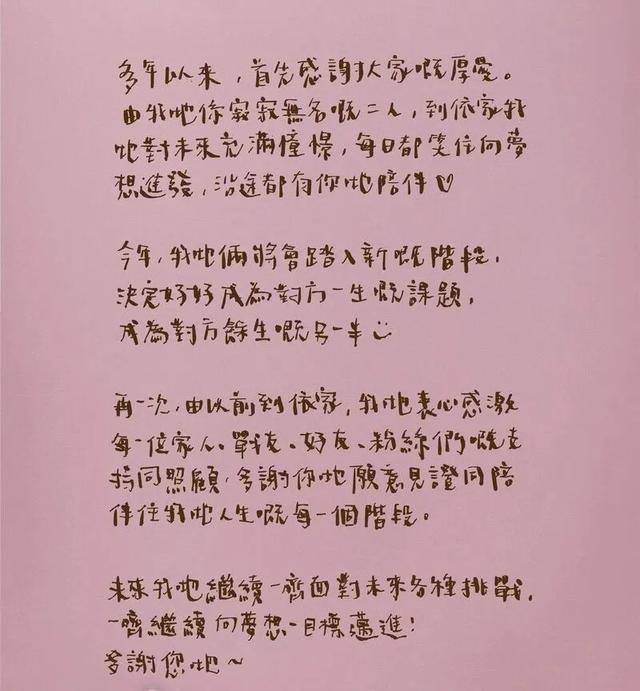 多年以來，首先感謝大家嘅厚愛。
由我哋係寂寂無名嘅二人，到依家我
哋對未來充滿憧憬，每日都笑住向夢
想進發，沿途都有你哋陪伴♡
今年，我哋倆將會踏入新嘅階段，
決定好好成為對方一生嘅課題，
成為對方餘生嘅另一半
再一次，由以前到依家，我哋衷心感激
每一位家人、戰友、好友、粉絲們嘅支
持同照顧，多謝你哋願意見證同陪
伴住我哋人生嘅每一個階段。
未來我哋繼續一齊面對未來各種挑戰，
一齊繼續向夢想一目標邁進！
多謝您哋～